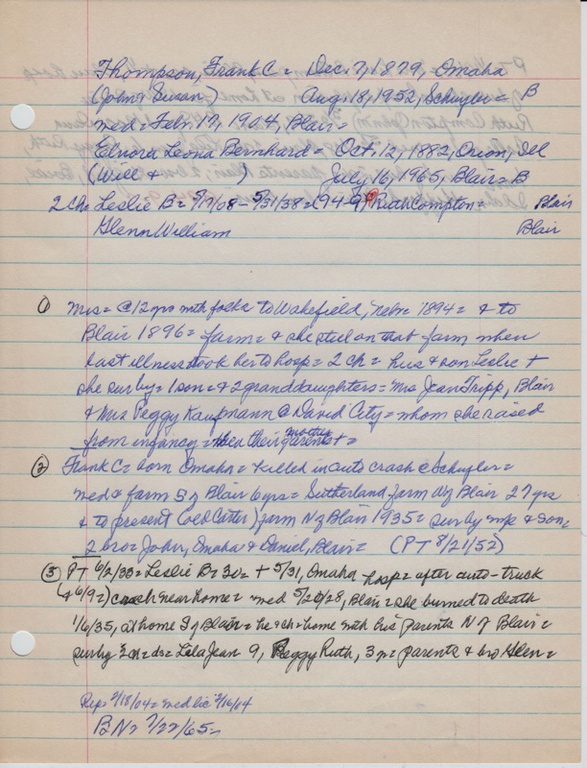 Thompson, Frank C = Dec. 7, 1879, Omaha
(John & Susan) Aug. 18, 1952, Schuyler = B
med = Feb. 17, 1904, Blair =
Elnora Leona Bernhard = Oct. 12, 1882, Orion, Ill
(Will & ) July 16, 1965, Blair = B
2 Ch. Leslie B = 5/31/38 = Ruth Compton = Blair
Glenn William Blair
① Mrs = @ 12 yrs with folks to Wakefield, Nebr 1894 = & to
Blair 1896 = farm = & she still on that farm when
last illness took her to hosp = 2 ch = hus & son Leslie +
she sur by = 1 son = & 2 granddaughters = Mrs Jean Tripp, Blair
& Mrs Peggy Kaufmann @ David City = whom she raised
from infancy = when their mother +=
② Frank C = born Omaha = killed in auto crash @ Schuyler =
med & farm S of Blair 6 yrs = Sutherland farm N of Blair 27 yrs
& to present (Cold Catter) farm N of Blair 1935 = sur by wife & son =
2 bro = John, Omaha & Daniel, Blair = (PT 8/21/52)
③ PT 6/2/38 = Leslie B = 30 = + 5/31, Omaha hosp = after auto-truck
& 6/9 =) crash near home = med 5/20/28, Blair = she burned to death
1/6/35, at home S of Blair = he & ch = home with his parents N of Blair =
sur by 2 ch = ds = Lela Jean 9, Peggy Ruth, 3 = & parents & bro Glen =
Rep = 2/18/04 = med lic 2/16/04
B N = 7/22/65 =